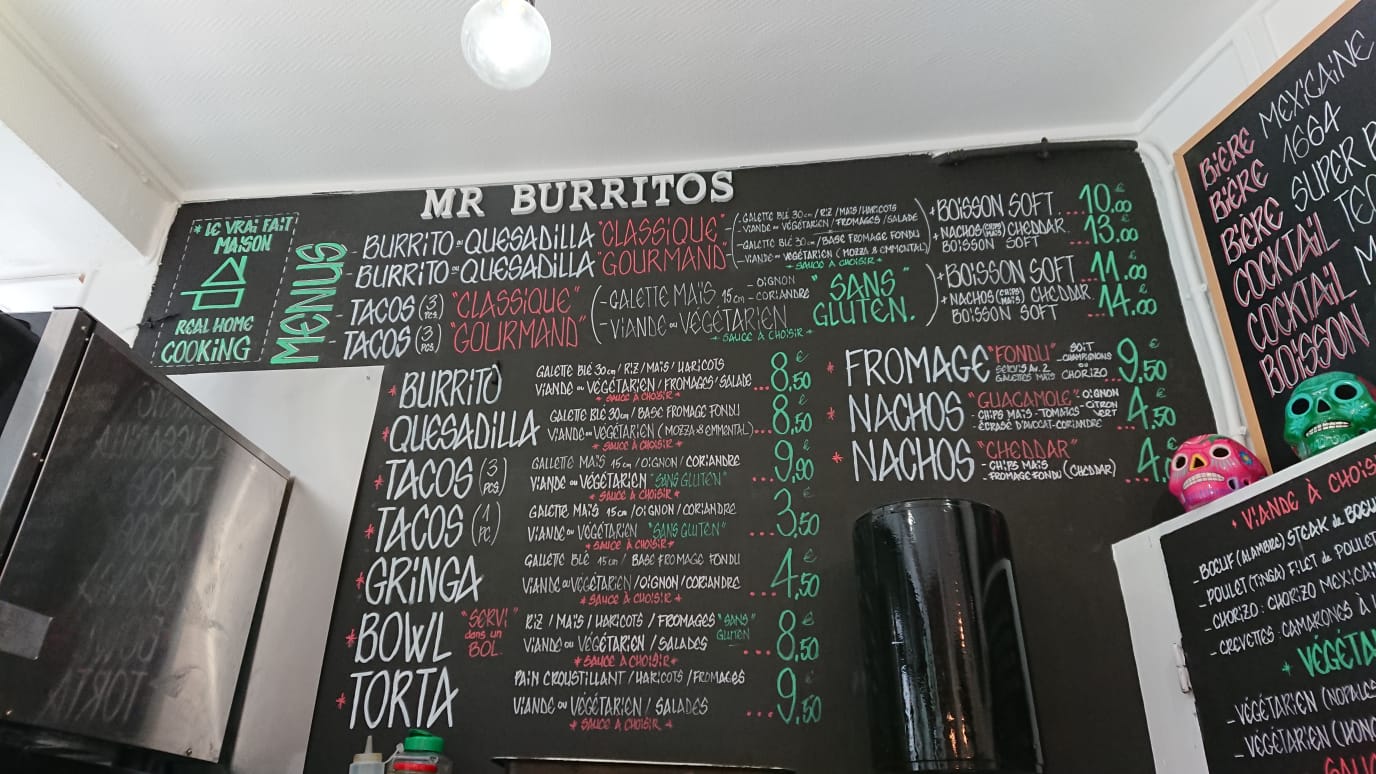 MR BURRITOS
* LE VRAI FAIT
MAISON
REAL HOME
COOKING
MENUS
- BURRITO ou QUESADILLA "CLASSIQUE"
- GALETTE BLÉ 30cm / RIZ / MAÏS / HARICOTS
- VIANDE ou VÉGÉTARIEN / FROMAGES / SALADE
+ BOISSON SOFT. 10.00€
- BURRITO ou QUESADILLA "GOURMAND"
- GALETTE BLÉ 30cm / BASE FROMAGE FONDU
- VIANDE ou VÉGÉTARIEN (MOZZA & EMMENTAL)
* SAUCE À CHOISIR *
+ NACHOS (CHIPS MAÏS) CHEDDAR
BOISSON SOFT ...13.00€
- TACOS (3 PCS.) "CLASSIQUE"
- GALETTE MAÏS 15cm - OIGNON - CORIANDRE
"SANS GLUTEN."
+ BOISSON SOFT ...11.00€
- TACOS (3 PCS.) "GOURMAND"
- VIANDE ou VÉGÉTARIEN
* SAUCE À CHOISIR *
+ NACHOS (CHIPS MAÏS) CHEDDAR
BOISSON SOFT ...14.00€
* BURRITO
GALETTE BLÉ 30cm / RIZ / MAÏS / HARICOTS
VIANDE ou VÉGÉTARIEN / FROMAGES / SALADE ...8,50€
* SAUCE À CHOISIR *
* QUESADILLA
GALETTE BLÉ 30cm / BASE FROMAGE FONDU
VIANDE ou VÉGÉTARIEN (MOZZA & EMMENTAL) ...8,50€
* SAUCE À CHOISIR *
* TACOS (3 PCS)
GALLETTE MAÏS 15cm / OIGNON / CORIANDRE
VIANDE ou VÉGÉTARIEN "SANS GLUTEN" ...9,90€
* SAUCE À CHOISIR *
* TACOS (1 PC)
GALETTE MAÏS 15cm / OIGNON / CORIANDRE
VIANDE ou VÉGÉTARIEN "SANS GLUTEN" ...3,50€
* SAUCE À CHOISIR *
* GRINGA
GALETTE BLÉ 15cm / BASE FROMAGE FONDU
VIANDE ou VÉGÉTARIEN / OIGNON / CORIANDRE ...4,50€
* SAUCE À CHOISIR *
* BOWL "SERVI dans un BOL."
RIZ / MAÏS / HARICOTS / FROMAGES "SANS GLUTEN"
VIANDE ou VÉGÉTARIEN / SALADES ...8,50€
* SAUCE À CHOISIR *
* TORTA
PAIN CROUSTILLANT / HARICOTS / FROMAGES
VIANDE ou VÉGÉTARIEN / SALADES ...9,50€
* SAUCE À CHOISIR *
* FROMAGE "FONDU" SOIT
SERVIS AV. 2 - CHAMPIGNONS
GALETTES MAÏS ou CHORIZO ...9,50€
* NACHOS "GUACAMOLE" - OIGNON
- CHIPS MAÏS - TOMATES - CITRON VERT
- ÉCRASÉ D'AVOCAT - CORIANDRE 4,50€
* NACHOS "CHEDDAR"
- CHIPS MAÏS
- FROMAGE FONDU (CHEDDAR) ...4
BIÈRE MEXICAINE
BIÈRE 1664
BIÈRE SUPER
COCKTAIL
COCKTAIL
BOISSON
* VIANDE À
- BOEUF (ALAMBRE) STEAK de
- POULET (TINGA) FILET de POULET
- CHORIZO : CHORIZO
- CREVETTES : CAMARONES À
*
- VÉGÉTARIEN
- VÉGÉTARIEN